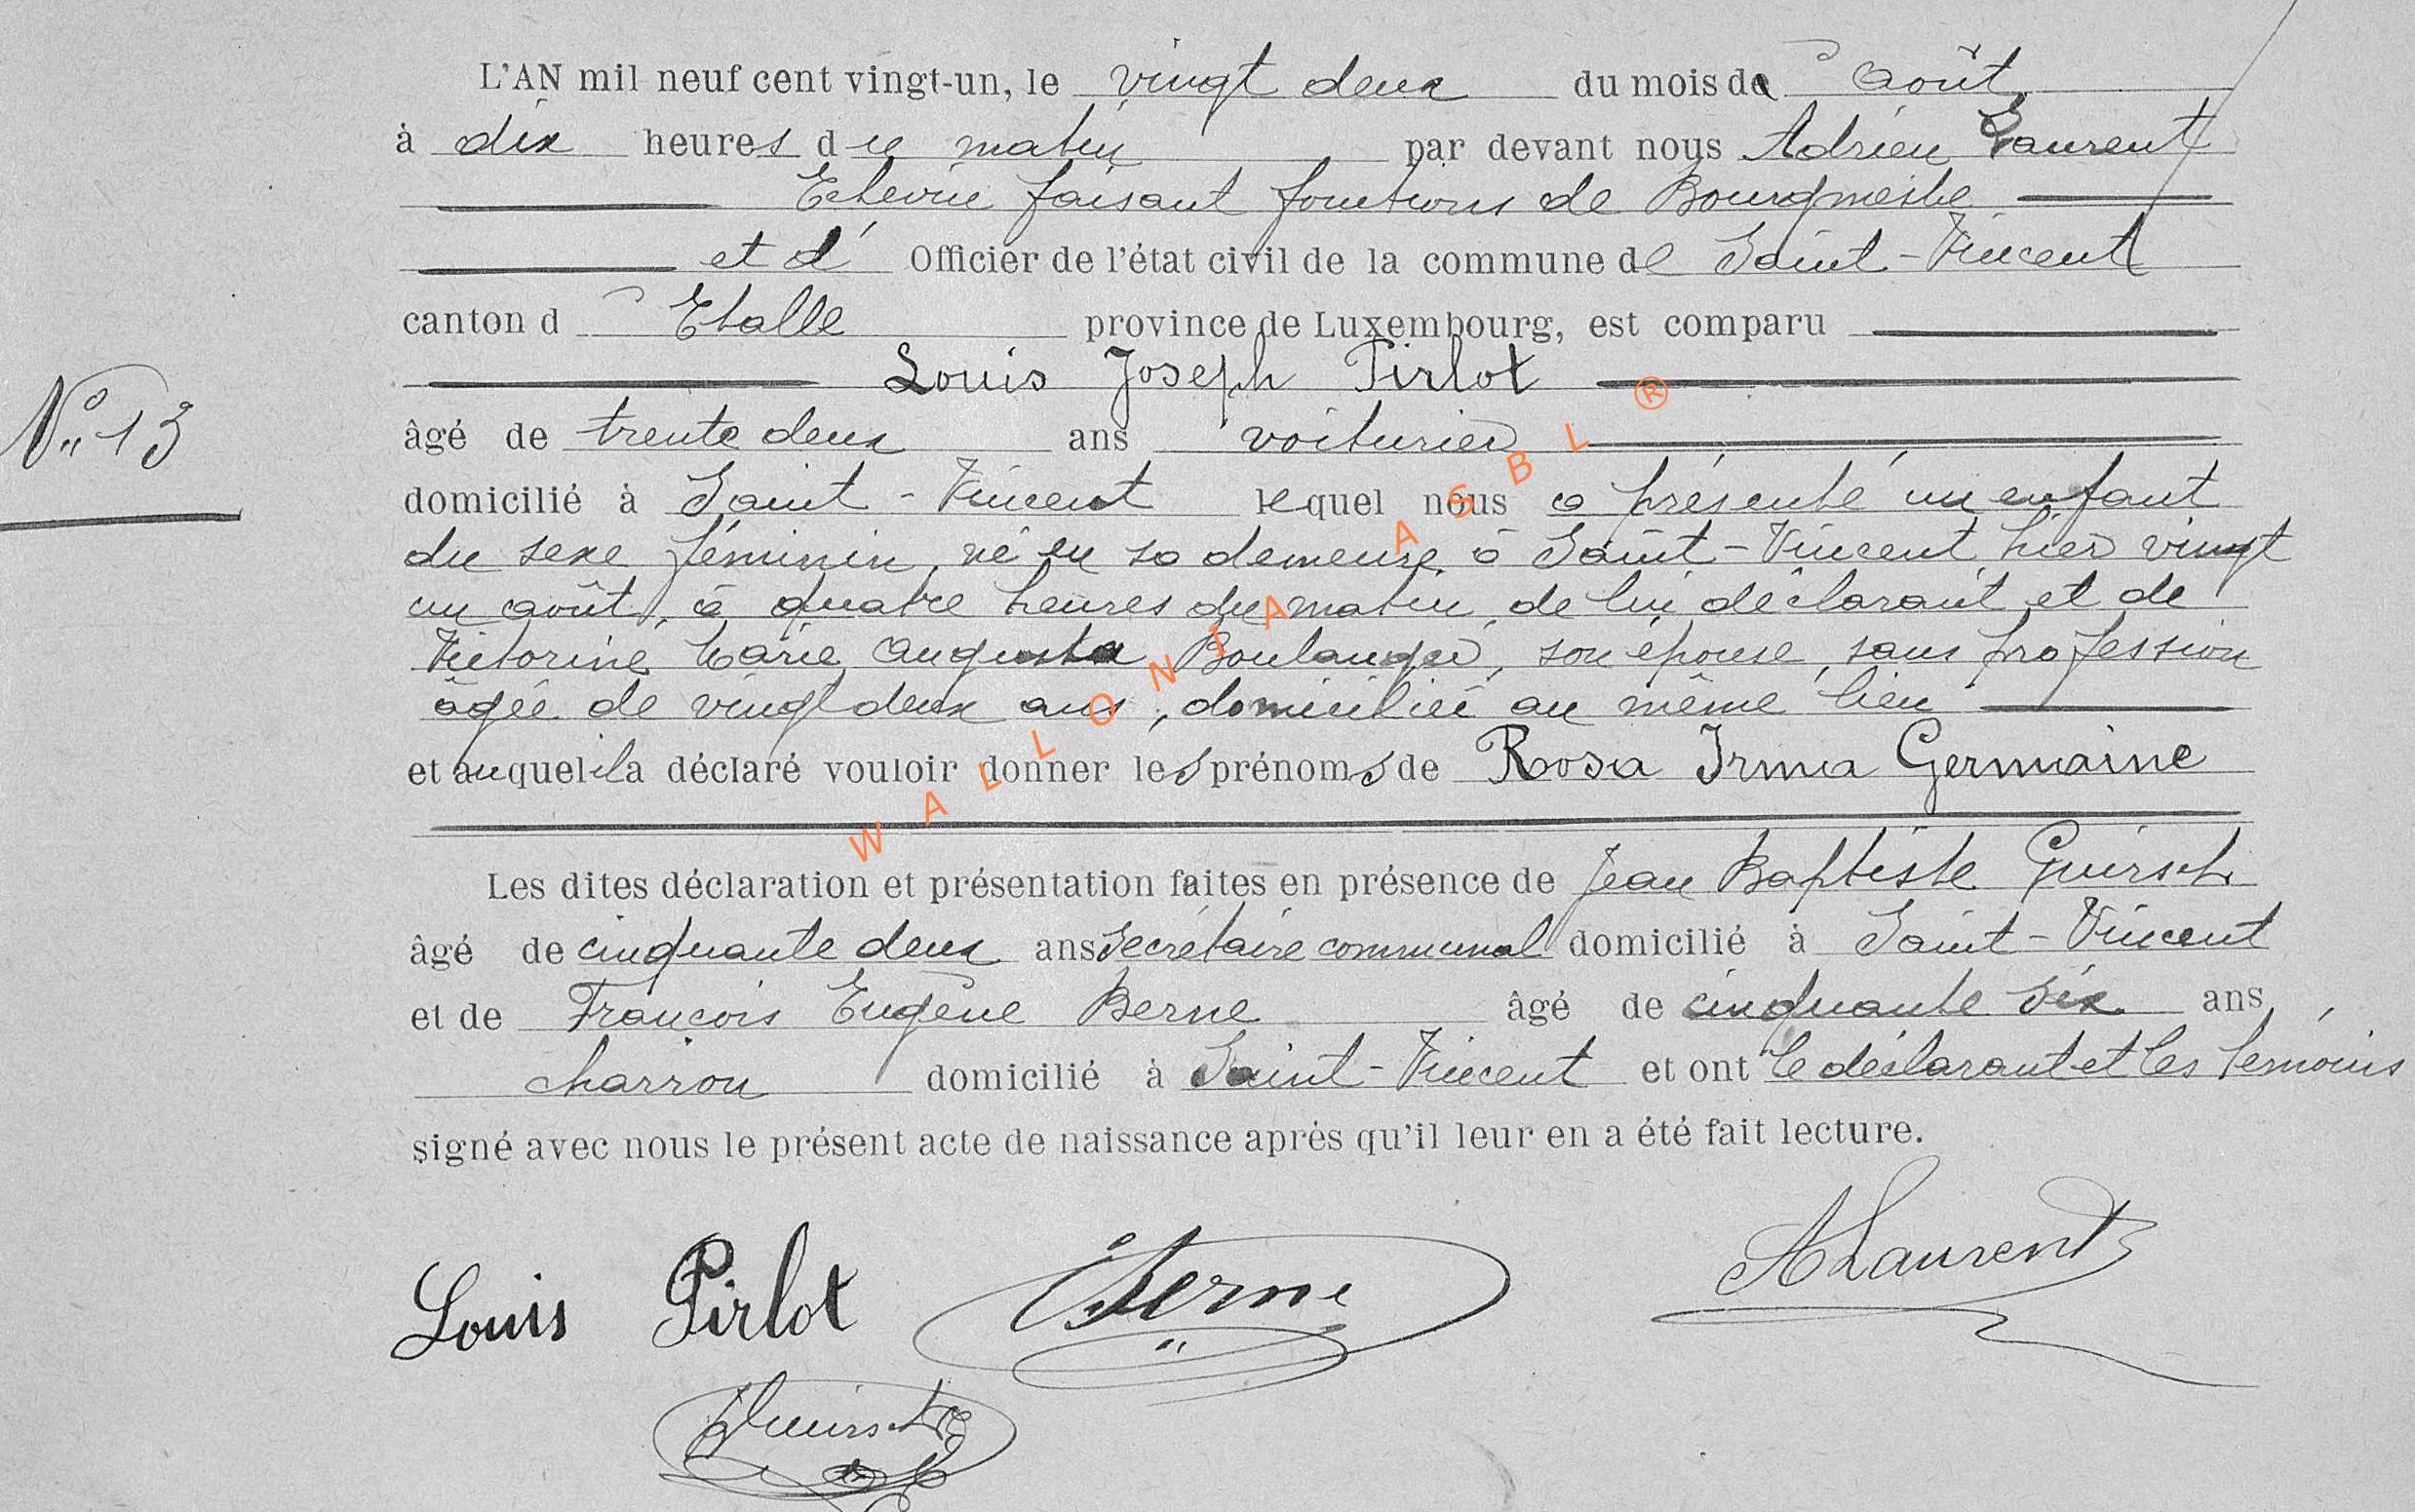 L'AN mil neuf cent vingt-un, le vingt deux du mois de Août
à dix heures du matin par devant nous Adrien Laurent
Echevin faisant fonctions de Bourgmestre
et d' Officier de l'état civil de la commune de Saint-Vincent
canton d' Etalle province de Luxembourg, est comparu
Louis Joseph Pirlot
N° 13
âgé de trente deux ans voiturier
domicilié à Saint-Vincent lequel nous a présenté un enfant
du sexe féminin, né en sa demeure à Saint-Vincent, hier vingt
un août, à quatre heures du matin, de lui déclarant et de
Victorine Marie Augusta Boulanger, son épouse, sans profession
âgée de vingt deux ans, domiciliée au même lieu
et auquel il a déclaré vouloir donner les prénoms de Rosa Irma Germaine
Les dites déclaration et présentation faites en présence de Jean Baptiste Guirsch
âgé de cinquante deux ans secrétaire communal domicilié à Saint-Vincent
et de François Eugène Berne âgé de cinquante six ans,
charron domicilié à Saint-Vincent et ont le déclarant et les témoins
signé avec nous le présent acte de naissance après qu'il leur en a été fait lecture.
Louis Pirlot Berne ALaurent
Guirsch
WALLONIA ASBL ®